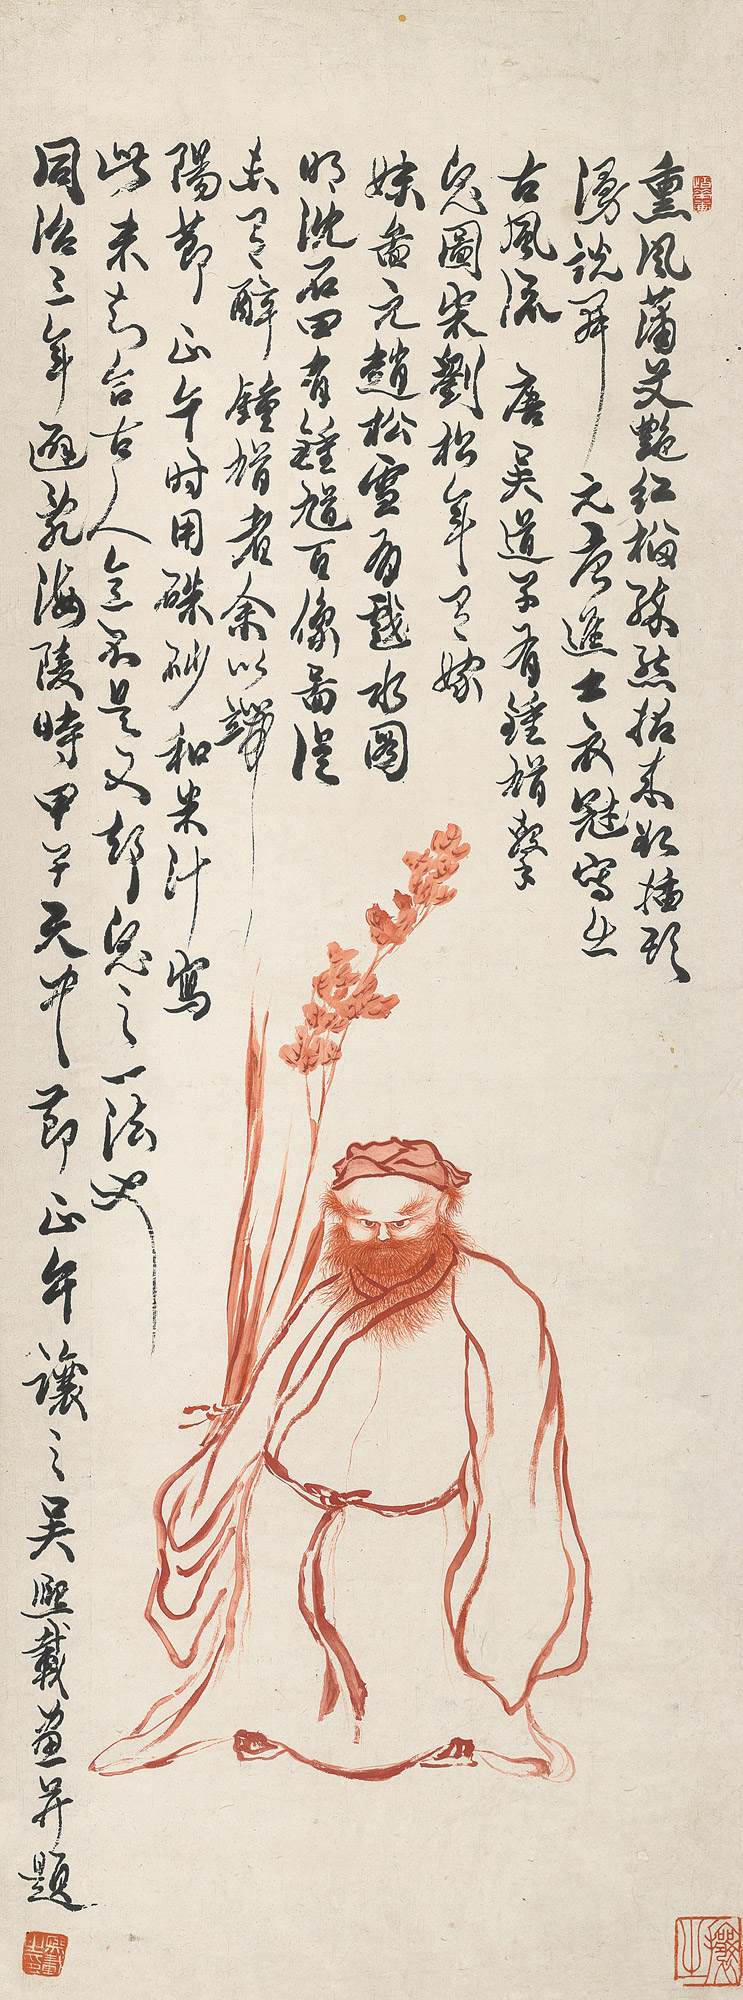 熏風蒲艾艷紅榴態拈來欲插頭
漫說開元唐進士衣冠寫出
古風流 唐吳道子有鍾馗擊
鬼圖宋劉松年有嫁
妹圖元趙松雪有戲水圖
明沈石田有鍾馗百像圖從
未有醉鍾馗者余以端
陽節正午时用硃砂和米汁寫
此未知合古人意否是又卻鬼之一法也
同治三年避亂海陵時甲子天中節正午讓之吳熙載畫并題